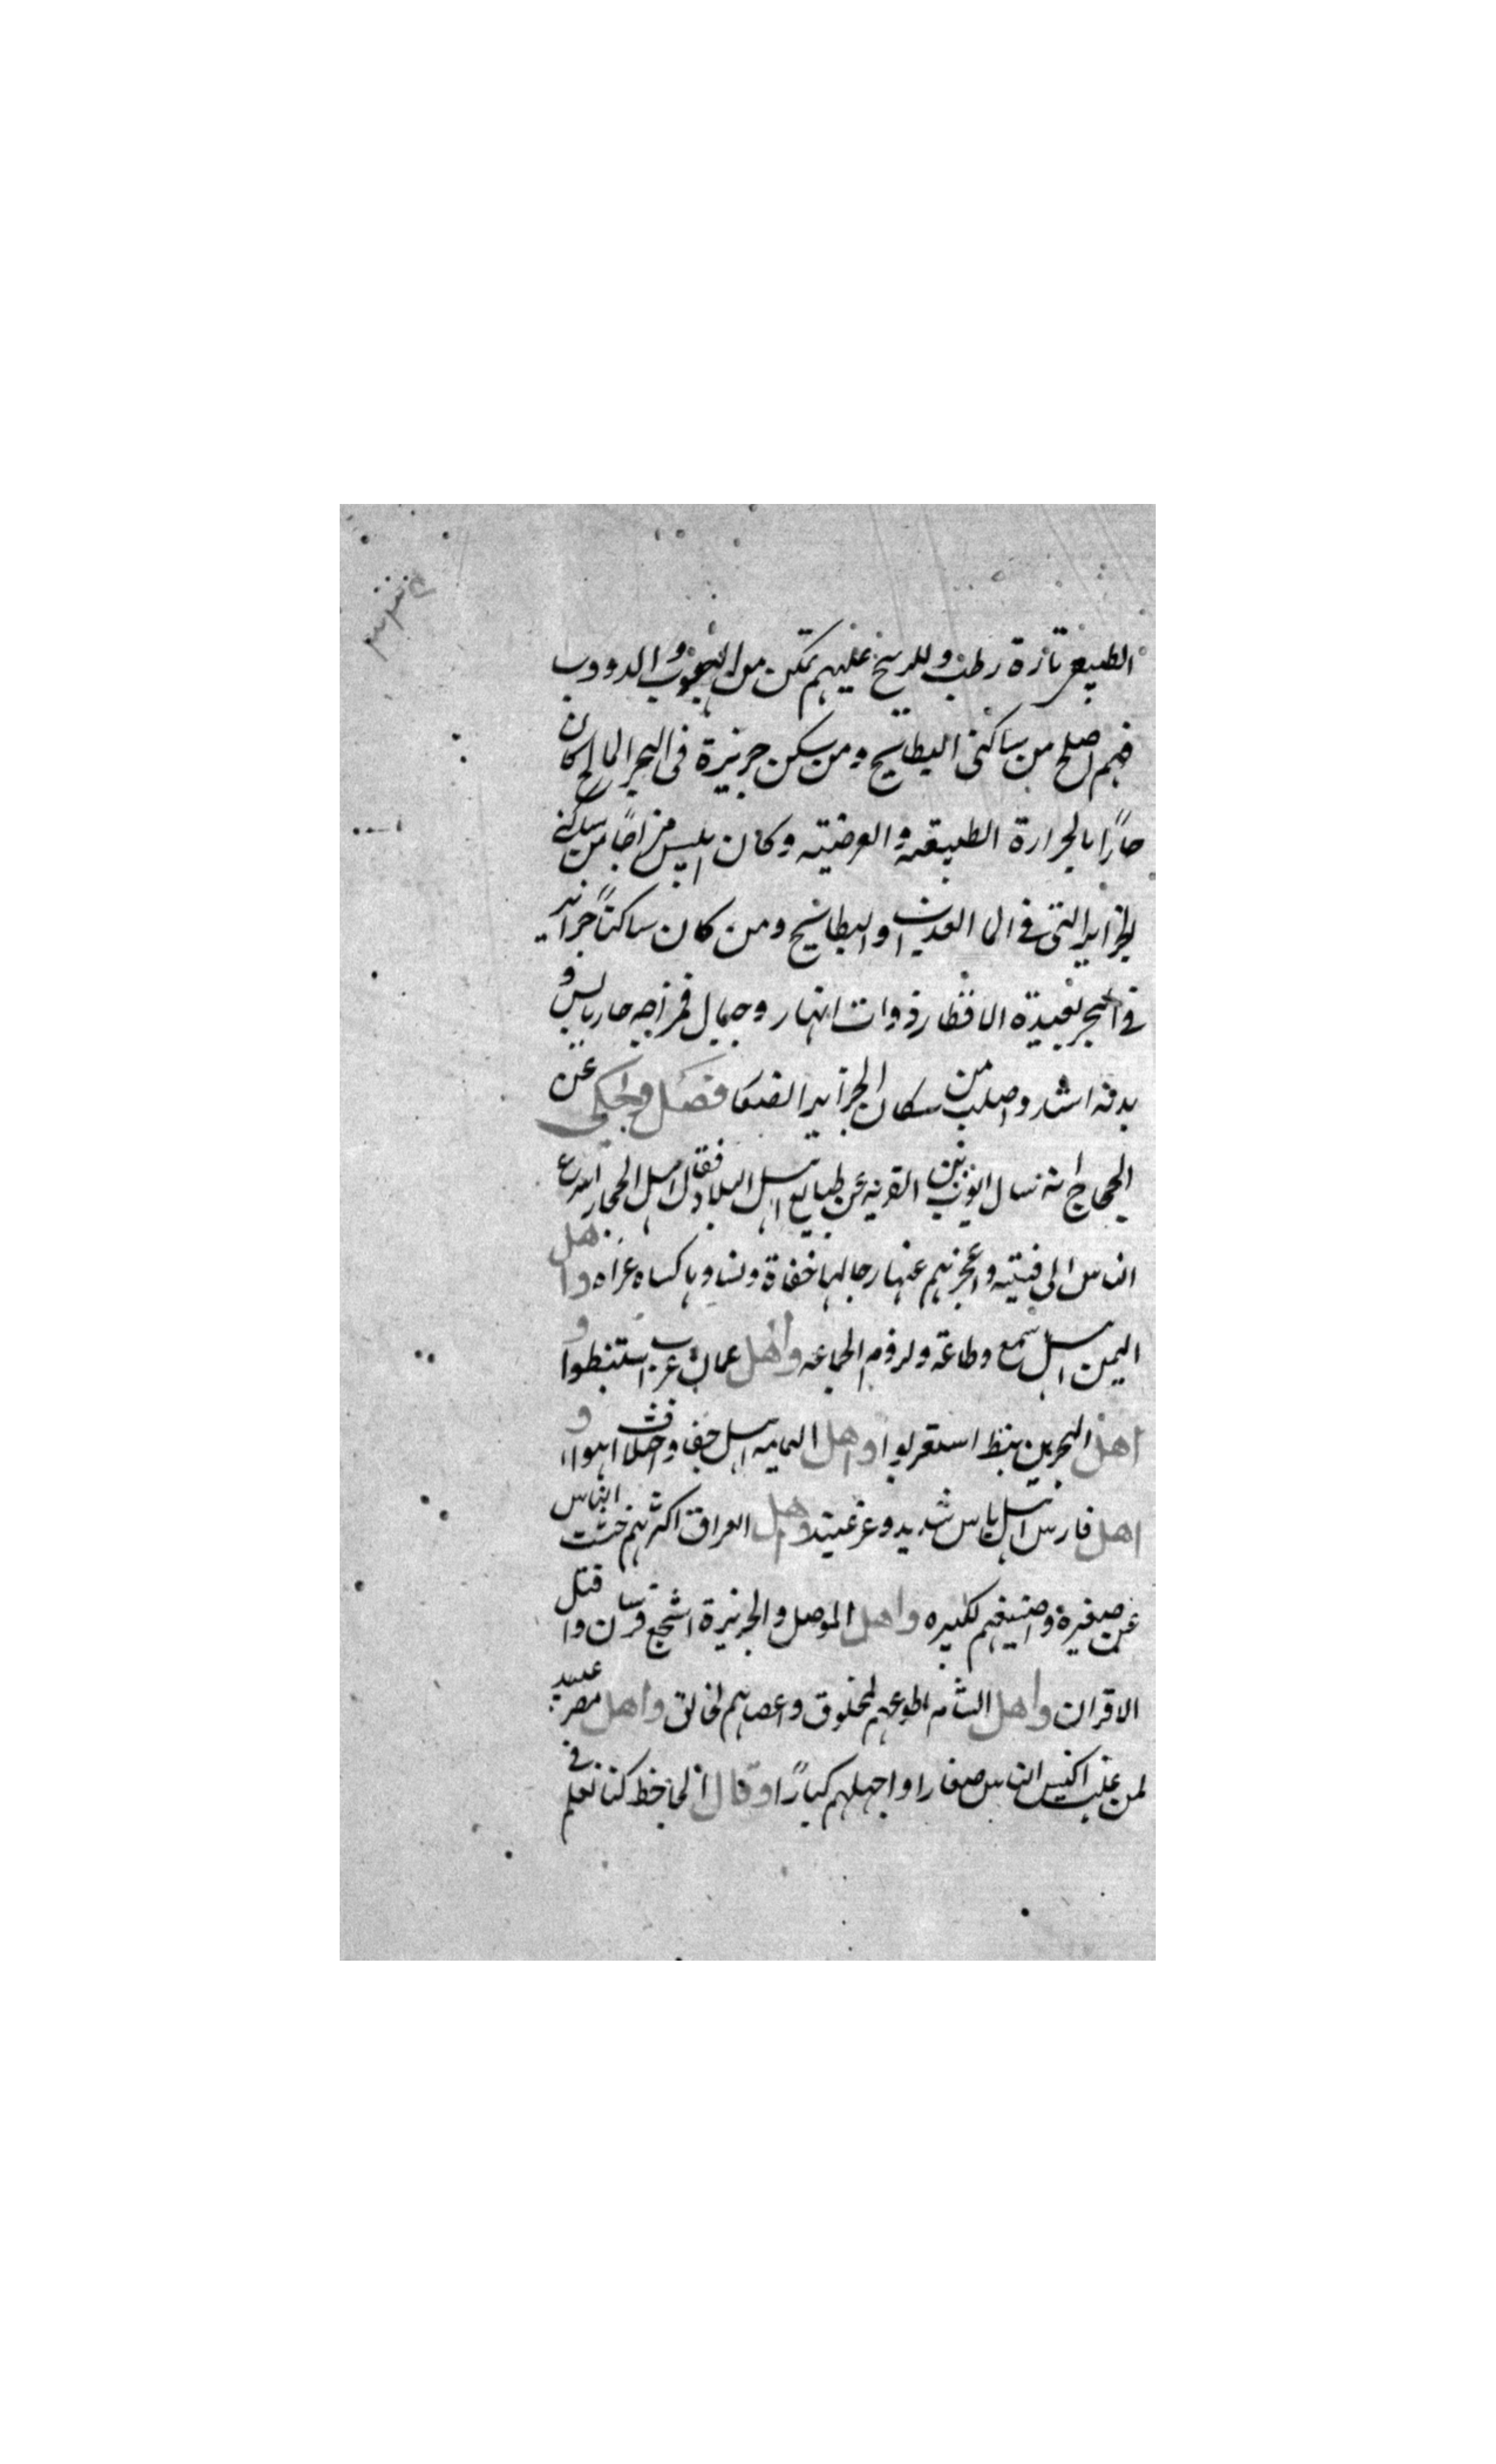 الطبيعي تازة رطب وللريح عليهم تمكن من الهبوب والدووب
فهم اصلح من ساكنى البطايح ومن سكن جزيرة فى البحر المالح كان
حارًا بالحرارة الطبيعية والعرضية وكان ايبس مزاجًا من ساكنى
الجزاير التى فى الما العذب والبطايح ومن كان ساكنًا جزاير
فى البحر بعيدة الاقطار ذوات انهار وجبال فمزاجه حار يابس و
بدنه اشد واصلب من سكان الجزاير الصغا فصل وحكى عن
الحجاج انه سال ايوب بن القريه عن طبايع اهل البلاد فقال اهل الحجاز اسرع
الناس الى فتنة واعجزهم عنها رجالها حفاة ونساوها كساه عراه واهل
اليمن اهل سمع وطاعة ولزوم الجماعه واهل عمان عرب استنبطوا و
اهل البحرين نبط استعربوا واهل اليمامه اهل جفا واختلاف اهوا و
اهل فارس اهل باس شديد وعز عتيد واهل العراق ابحث الناس
عن صغيرة واضيعهم لكبيره واهل الموصل والجزيرة اشجع فرسان واقتل
الاقران واهل الشام اطوعهم لمخلوق واعصاهم لخالق واهل مصر عبيد
لمن غلب اكيس الناس صغارا واجهلهم كبارًا وقال الجاحظ كنا نعلم فى